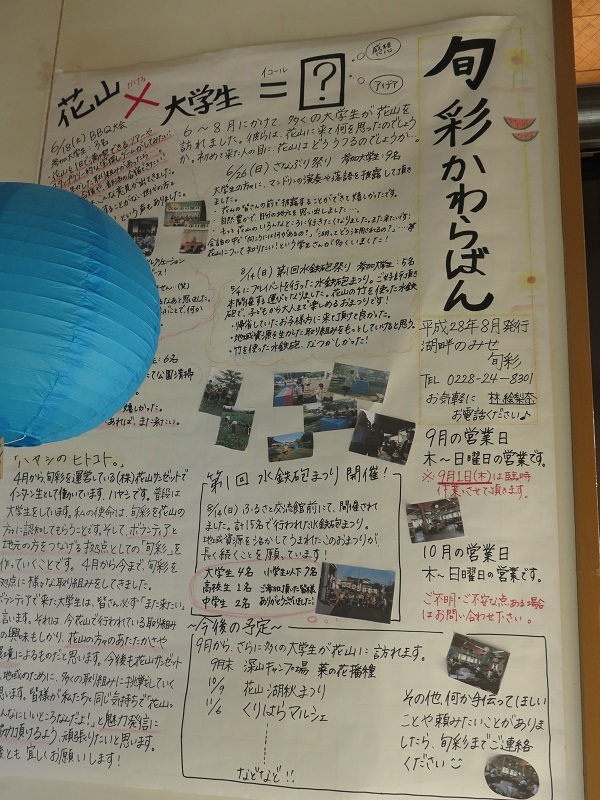 旬彩かわらばん
平成28年8月発行
湖畔のみせ
旬彩
TEL 0228-24-8301
お気軽に 林 絵梨奈
お電話ください♪
9月の営業日
木～日曜日の営業です。
※ 9月1日(木)は臨時
休業させて頂きます。
10月の営業日
木～日曜日の営業です。
ご不明・ご不安な点ある場合
はお問い合わせ下さい。
花山 × 大学生 = ?
かける
イコール
感想
アイデア
6～8月にかけて、多くの大学生が花山を
訪れました。彼らは、花山に来て何を思ったのでしょう
か。初めて来た人の目に、花山はどううつるのでしょうか…。
6/18(土) BBQ大会
参加大学生：3名
6/26(日) さなぶり祭り 参加大学生：9名
大学生の方々に、マンドリンの演奏や落語を披露して頂き
ました。
・花山の皆さんの前で披露することができて嬉しかったです。
・自然豊かで、自分の地元を思い出しました…。
・もっと花山のいろんなところに行きたくなりました。また来たいです！
花山について知りたい！という学生さんが多くいました！
8/14(日) 第1回水鉄砲祭り 参加大学生：5名
砲で、子どもから大人まで楽しめるおまつりです！
・帰省していたお子様方に来て頂けて良かった。
・地域資源を生かした取り組みをもっとしていけると思う。
・竹を使った水鉄砲、なつかしかった！
「ハヤシのヒトコト。」
4月から旬彩を運営している(株)花山サンゼットで
インターン生として働いています、ハヤシです。普段は
大学生をしています。私の使命は、旬彩を花山の
方々に認知してもらうことです。そして、ボランティアと
地元の方をつなげる拠点としての「旬彩」を
作っていくことです。4月から今まで、旬彩を
拠点に様々な取り組みをしてきました。
ボランティアで来た大学生は、皆さん必ず「また来たい」
と言います。それは、今花山で行われている取り組み
の興味もしかり、花山の方々のあたたかさや
環境によるものだと思います。今後も花山サンゼット
地域のために、多くの取り組みに挑戦をしていく
思います。皆様が私たちと同じ気持ちで「花山っ
んなにいいところなんだよ！」と魅力発信に
協力頂けるよう、頑張りたいと思います。
後とも宜しくお願いします！
第1回 水鉄砲まつり 開催！
8/14(日) ふるさと交流館前にて、開催され
ました。計15名で行われた水鉄砲まつり。
地域資源を活かしてうまれたこのおまつりが
長く続くことを願っています！
大学生 4名 小学生以下 7名
高校生 1名 ご参加頂いた皆様
中学生 2名 ありがとうございました！
～今後の予定～
9月から、さらに多くの大学生が花山に訪れます。
9月末 深山キャンプ場 菜の花播種
10/9 花山湖秋まつり
11/6 くりはらマルシェ
などなど！！
その他、何か手伝ってほしい
ことや頼みたいことがありま
したら、旬彩までご連絡
ください☺